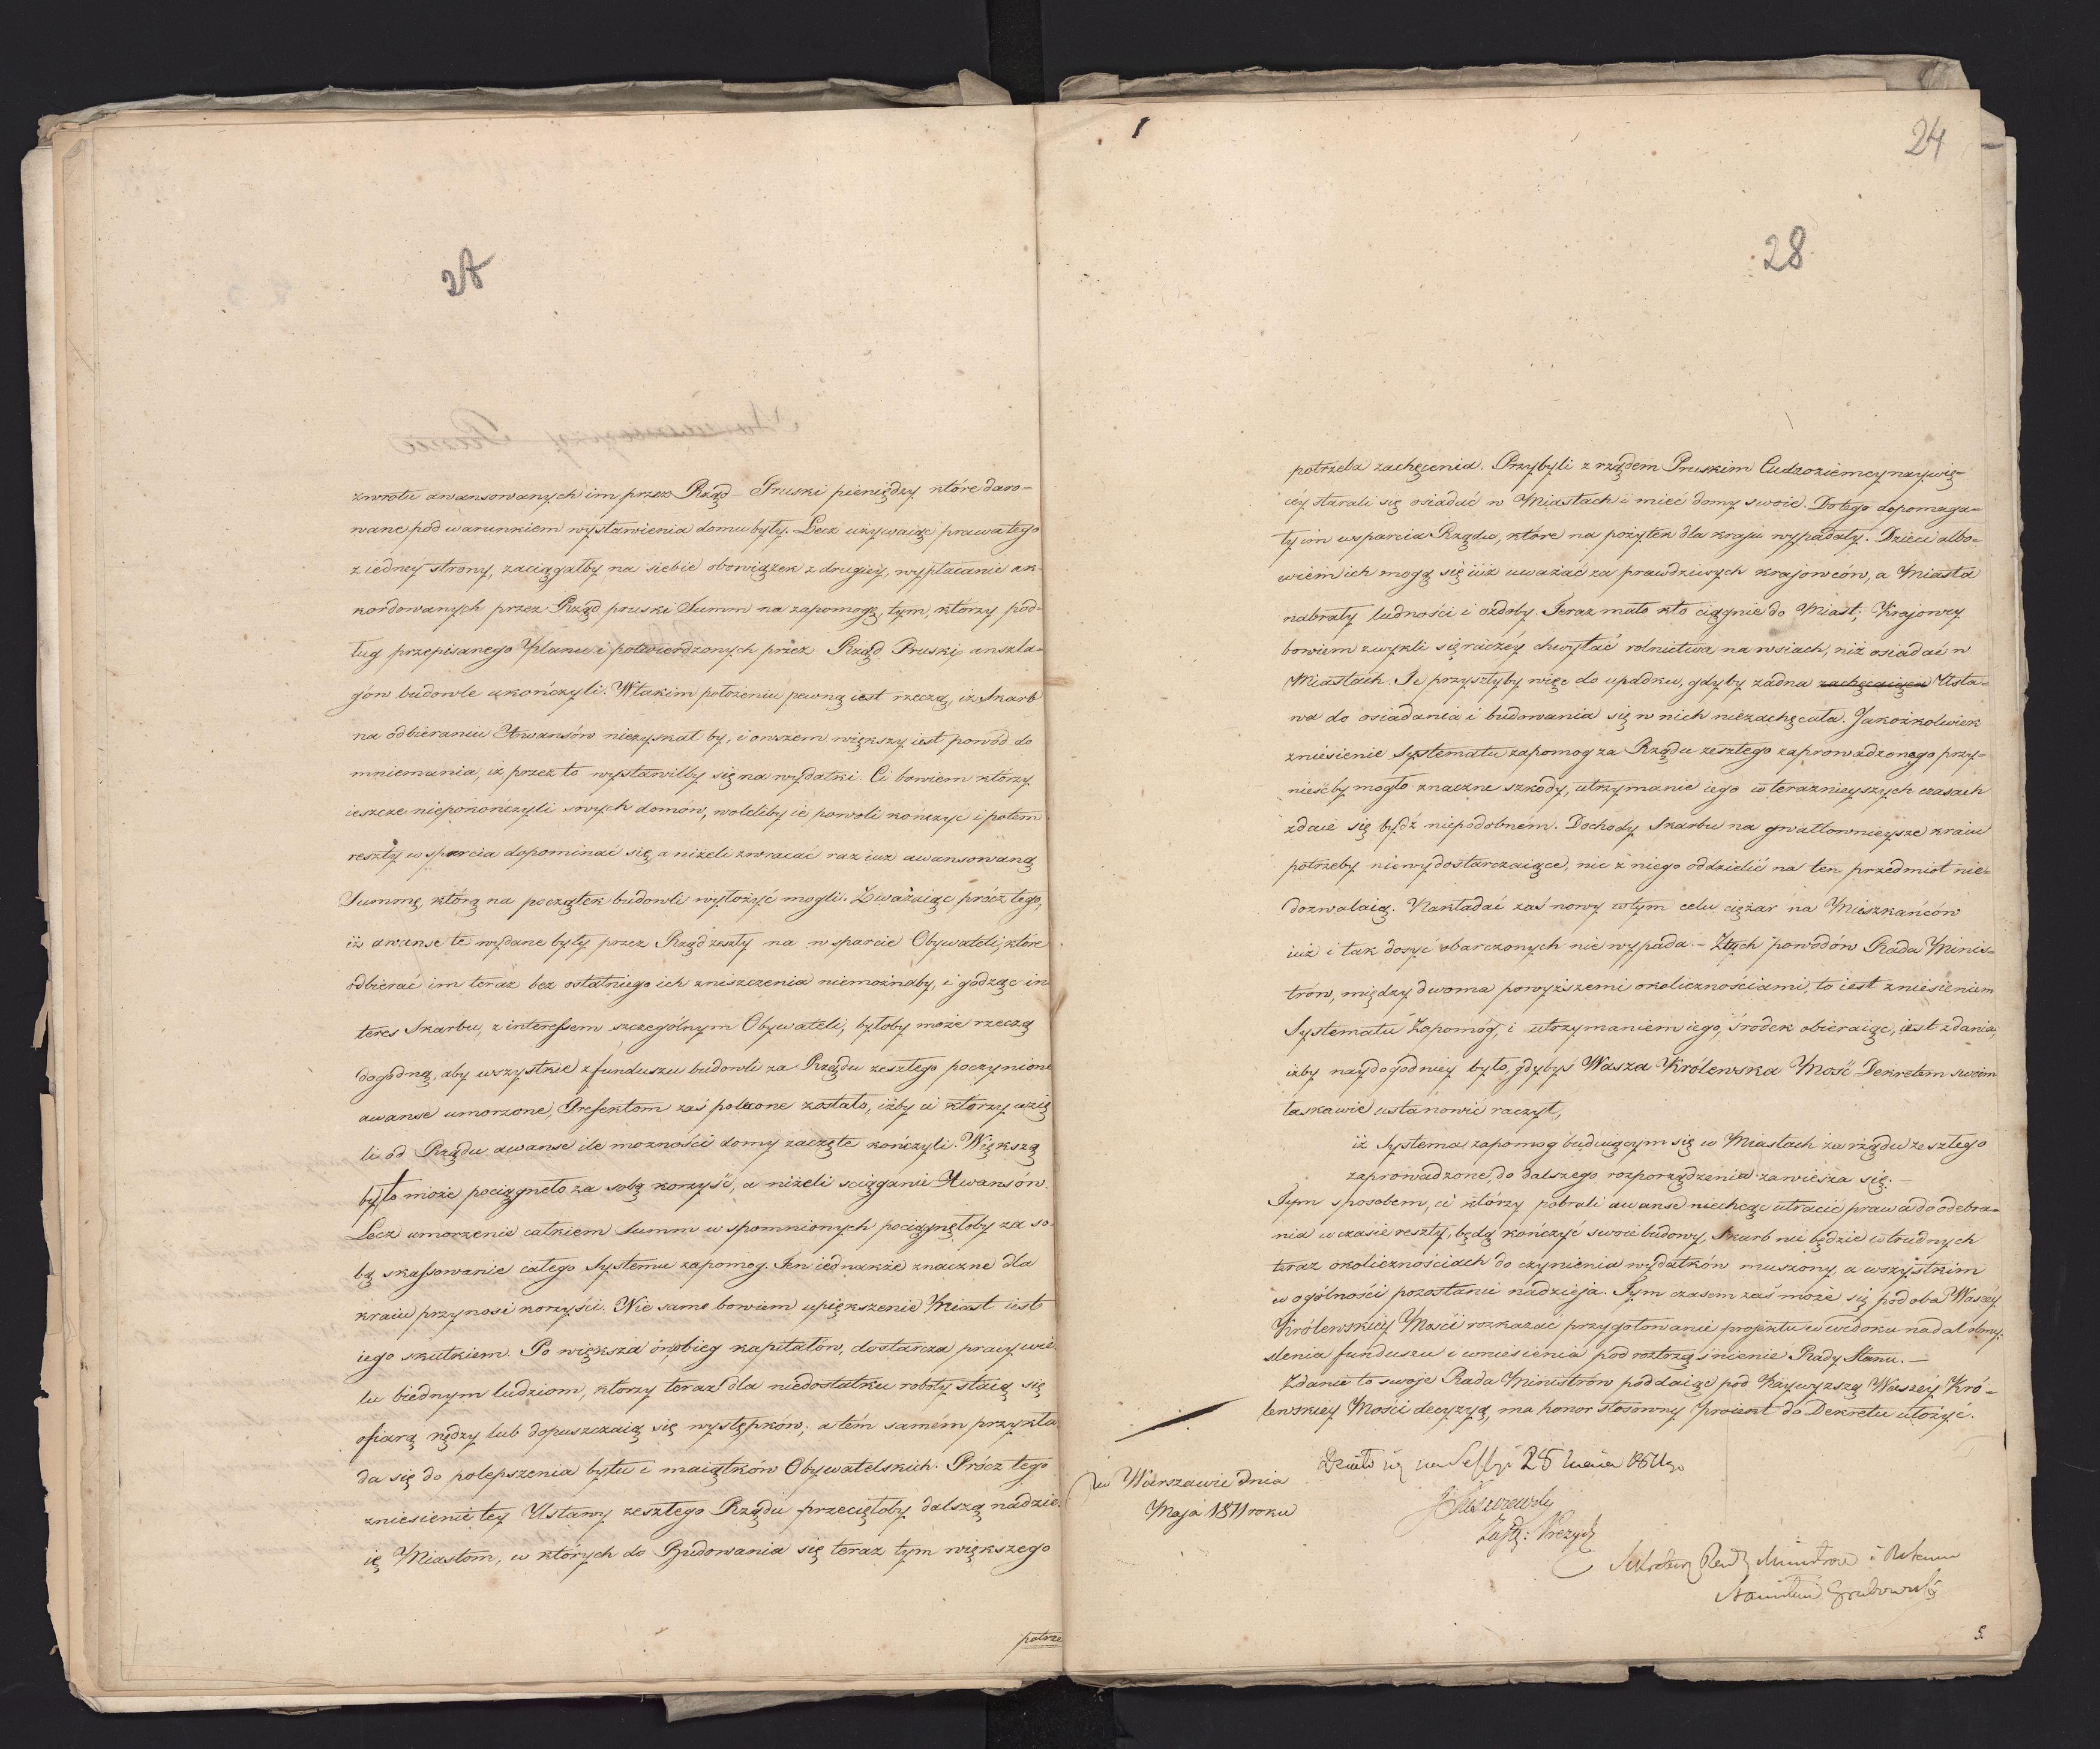 zwrotu awansowanych im przez Rząd Pruski pieniędzy które daro-
wane pod warunkiem wystawienia domu były. Lecz używaiąc prawa tego
z iedney strony, zaciągałby na siebie obowiązek z drugiey, wypłacanie ak-
kordowanych przez Rząd pruski Summ na zapomogę, tym, którzy pod-
ług przepisanego planu i potwierdzonych przez Rząd Pruski anszla-
gów budowle ukończyli. W takim położeniu pewną iest rzeczą, iż Skarb
na odbieraniu Awansów niezyskał by, i owszem większy iest powód do
mniemania, iż przez to wystawiłby się na wydatki. Ci bowiem którzy
ieszcze niepokończyli swych domów, woleliby ie powoli kończyć i potem
reszty wsparcia dopominać się, a niżeli zwracać raz iuż awansowaną
Summę, którą na początek budowli wyłożyć mogli. Zważaiąc prócz tego,
iż awanse te wydane były przez Rząd zeszły na wsparcie Obywateli, które
odbierać im teraz bez ostatniego ich zniszczenia niemożnaby, i godząc in-
teres Skarbu, z interessem szczególnym Obywateli, byłoby może rzeczą
dogodną, aby wszystkie z funduszu budowli za Rządu zeszłego poczynione
awanse umorzone, Prefektom zaś polecone zostało, iżby ci którzy wzię
li od Rządu awanse ile możności domy zaczęte kończyli. Większą
by to może pociągneło za sobą korzyść, a niżeli sciąganie Awansów.
Lecz umorzenie całkiem Summ wspomnionych pociągnęłoby za so-
bą skassowanie całego Systemu zapomog. Ten iednakże znaczne dla
kraiu przynosi korzyści. Nie samo bowiem upiększenie Miast iest
iego skutkiem. Po większa on obieg kapitałów, dostarcza pracy wie-
lu biednym ludziom, którzy teraz dla niedostatku roboty staią się
ofiarą nędzy lub dopuszczaią się występków; a tém samém przykła
da się do polepszenia bytu i maiątków Obywatelskich. Prócz tego
zniesienie tey Ustawy zeszłego Rządu przecięłoby dalszą nadzie-
ię Miastom, w których do Budowania się teraz tym większego
potrze
24
28
potrzeba zachęcenia. Przybyli z rządem Pruskim Cudzoziemcy naywię-
céy starali się osiadać w Miastach i mieć domy swoie. Do tego dopomaga-
ły im wsparcia Rządu, które na pożytek dla kraju wypadały. Dzieci albo-
wiem ich mogą się iuż uważać za prawdziwych krajowców, a Miasta
nabrały ludności i ozdoby. Teraz mało kto ciągnie do Miast; Krajowcy
bowiem zwykli się raczéy chwytać rolnictwa na wsiach, niż osiadać w
Miastach. Te przyszłyby więc do upadku, gdyby żadna zachęcaiąca Usta-
wa do osiadania i budowania się w nich niezachęcała. Jakożkolwiek
zniesienie Systematu zapomog za Rządu zeszłego zaprowadzonego przy-
nieśćby mogło znaczne szkody, utrzymanie iego w teraznieyszych czasach
zdaie się bydź niepodobném. Dochody Skarbu na gwałtownieysze kraiu
potrzeby niewydostarczaiące, nic z niego oddzielić na ten przedmiot nie-
dozwalaią. Nakładać zaś nowy w tym celu ciężar na Mieszkańców
iuż i tak dosyć obarczonych nie wypada. – Z tych powodów Rada Minis-
trów, między dwoma powyższemi okolicznościami, to iest zniesieniem
Systematu Zapomóg, i utrzymaniem iego, środek obieraiąc, iest zdania,
iżby naydogodniey było, gdybyś Wasza Królewska Mość Dekretem swoim
łaskawie ustanowić raczył,
iż Systema zapomog buduiącym się w Miastach za rządu zeszłego
zaprowadzone, do dalszego rozporządzenia zawiesza się. –
Tym sposobem, ci którzy pobrali awanse niechcąc utracić prawa do odebra-
nia w czasie reszty, będą kończyć swoie budowy, Skarb nie będzie w trudnych
teraz okolicznościach do czynienia wydatków muszony, a wszystkim
w ogólności pozostanie nadzieja. Tym czasem zaś może się podoba Waszéy
Królewskiéy Mości rozkazać przygotowanie projektu w widoku nadal obmy-
ślenia funduszu i wniesienia pod roztrząśnienie Rady Stanu. –
Zdanie to swoje Rada Ministrów poddaiąc pod Naywyższą Waszéy Kró-
lewskiey Mości decyzyą, ma honor stosowny Proiekt do Dekretu ułożyć.
Działo się na Sessyi 25 maia 1811go
w Warszawie dnia
Maja 1811 roku
Zastę: Prezyd
Sekretarz Rady Ministrów i Stanu
Stanisław Grabowski
5.